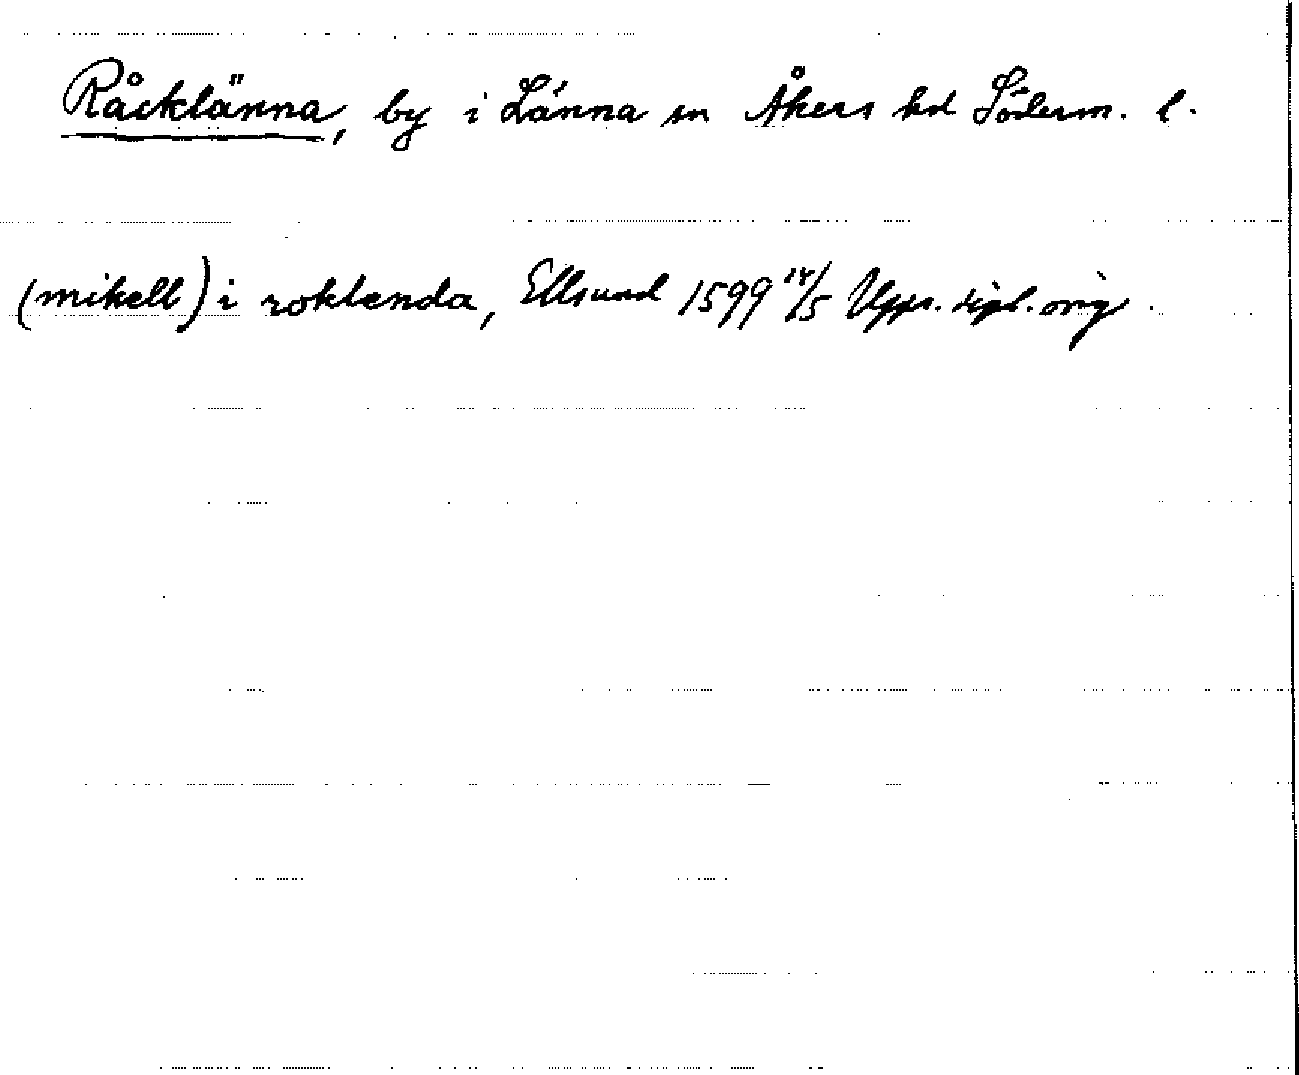 Råcklänna, by i Länna sn Åkers hd Söderm. l.
(mikell) i roklenda, Ellsund 1599 14/5 Upps. dipl. orig.